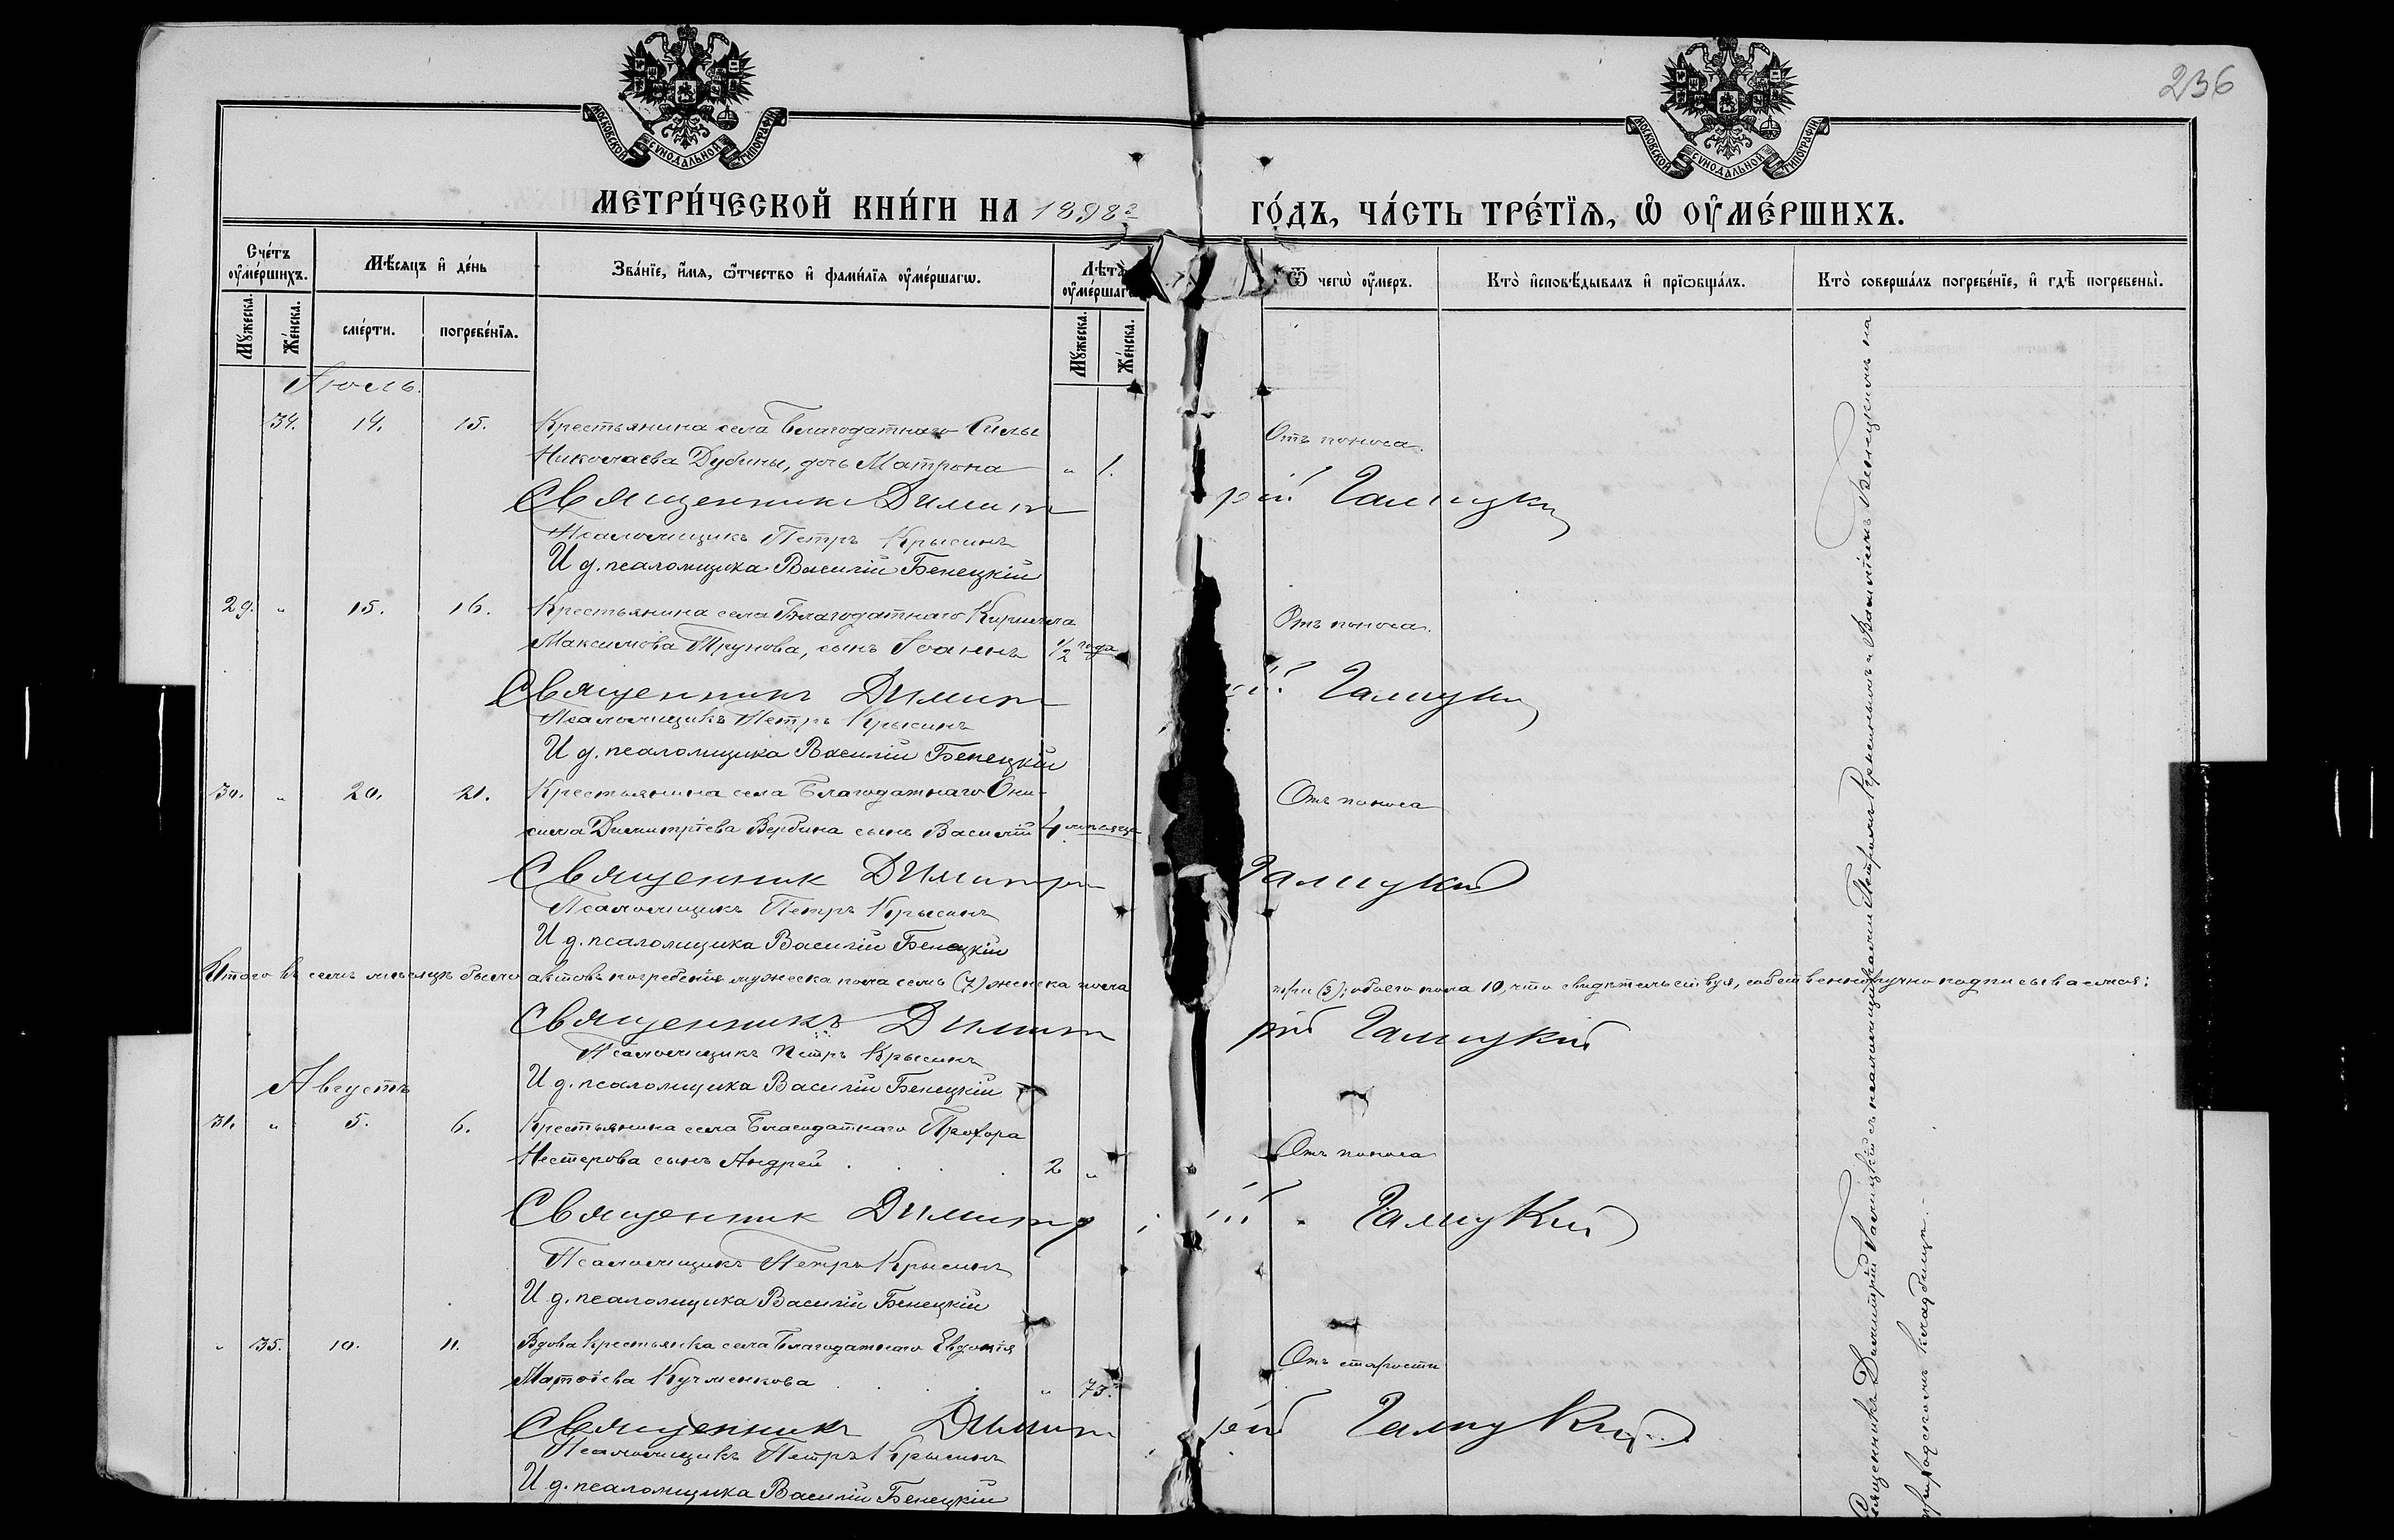 236
МОСКОВСКОЙ СУНОДАЛЬНОЙ ТИПОГРАФІИ
МОСКОВСКОЙ СУНОДАЛЬНОЙ ТИПОГРАФІИ
МЕТРИ́ЧЕСКОЙ КНИ́ГИ НА 1898 г. ГО́ДЪ, ЧА́СТЬ ТРЕ́ТЇѦ, Ѡ҆ ОУ҆МЕ́РШИХЪ.
Сче́тъ оу҆ме́ршихъ.
Мꙋ́жеска.
Же́нска.
Мѣ́сѧцъ и҆ де́нь
сме́рти.
погребе́нїѧ.
Зва́нїе, и҆́мѧ, ѻ҆́тчество и҆ фами́лїѧ оу҆ме́ршагѡ.
Лѣ́та оу҆ме́ршагѡ
Мꙋ́жеска.
Же́нска.
Ѿ чегѡ̀ оу҆́меръ.
Кто̀ и҆сповѣ́дывалъ и҆ прїѡбща́лъ.
Кто̀ соверша́лъ погребе́нїе, и҆ гдѣ̀ погребены̀.
Іюль.
34. 14. 15. Крестьянина села Благодатнаго Силы Отъ поноса.
Николаева Дубины, дочь Матрона „ 1.
Священникъ Димитрій Галицкій
Псаломщикъ Петръ Крысинъ
И д. псаломщика Василій Бенецкій
29. „ 15. 16. Крестьянина села Благодатнаго Кирилла Отъ поноса.
Максимова Трунова, сынъ Іоаннъ 1/2 года
Священникъ Димитрій Галицкій
Псаломщикъ Петръ Крысинъ
И д. псаломщика Василій Бенецкій
30. „ 20. 21. Крестьянина села Благодатнаго Они- Отъ поноса
сима Димитріева Вербина сынъ Василій 4 мѣсяца
Священник Димитрій Галицкій
Псаломщикъ Петръ Крысинъ
И д. псаломщика Василій Бенецкій
Итого въ семъ мѣсяцѣ было актовъ погребенія мужеска пола семь (7) женска пола три (3); обоего пола 10, что свидѣтельствуя, собственноручно подписываемся:
Священникъ Димитрій Галицкій
Псаломщикъ Петръ Крысинъ
И д. псаломщика Василій Бенецкій
Августъ
31. „ 5. 6. Крестьянина села Благодатнаго Прохора Отъ поноса
Нестерова сынъ Андрей 2 „
Священник Димитрій Галицкій
Псаломщикъ Петръ Крысинъ
И д. псаломщика Василій Бенецкій
„ 35. 10. 11. Вдова крестьянка села Благодатнаго Евдокія Отъ старости
Матѳіева Кучменкова „ 73.
Священникъ Димитрій Галицкій
Псаломщикъ Петръ Крысинъ
И д. псаломщика Василій Бенецкій
Священникъ Димитрій Галицкій съ псаломщиками Петромъ Крысинымъ и Василіемъ Бенецкимъ на
приходскомъ кладбищѣ.